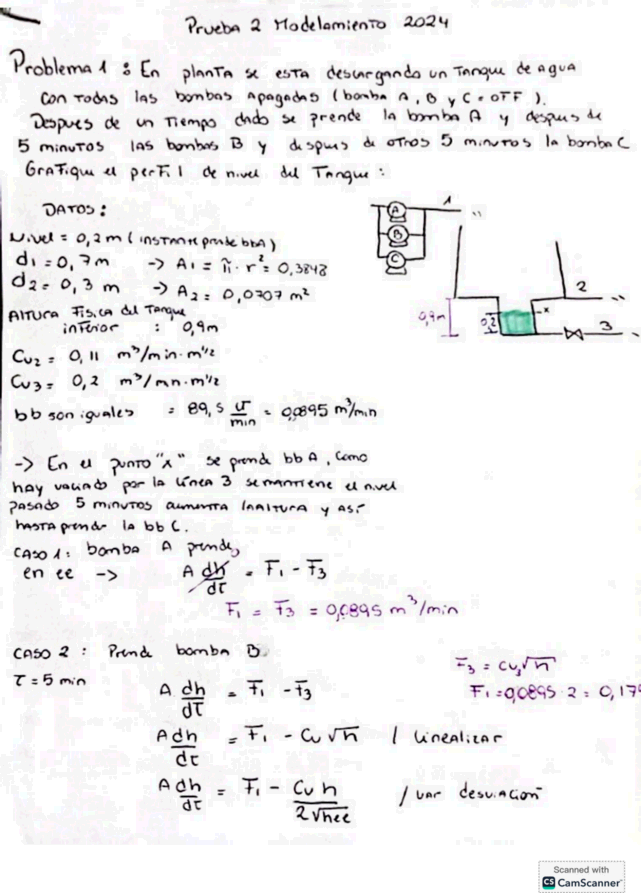 Prueba 2 Modelamiento 2024
Problema 1 : En planta se esta descargando un Tanque de agua
con todas las bombas apagadas (bomba A, B y C = OFF).
Despues de un Tiempo dado se prende la bomba A y despues de
5 minutos las bombas B y despues de otros 5 minutos la bomba C
Grafique el perfil de nivel del Tanque :
DATOS :
Nivel = 0,2 m (instante prende bbA)
d1 = 0,7m -> A1 = π · r² = 0,3848
d2 = 0,3 m -> A2 = 0,0707 m²
Altura Fisica del Tanque
inferior : 0,9m
Cv2 = 0,11 m³/min·m^1/2
Cv3 = 0,2 m³/mn·m^1/2
bb son iguales = 89,5 lt/min = 0,0895 m³/min
A
B
C
1
2
3
0,9m
0,2
x
-> En el punto "x" se prende bb A, como
hay vaciado por la linea 3 se mantiene el nivel
pasado 5 minutos aumenta la altura y asi
hasta prender la bb C.
CASO 1: bomba A prende,
en ee -> A dh/dt = F1 - F3
F1 = F3 = 0,0895 m³/min
CASO 2 : Prende bomba B
T = 5 min
F3 = Cv3√h
F1 = 0,0895 · 2 = 0,179
A dh/dt = F1 - F3
A dh/dt = F1 - Cv √h / Linealizar
A dh/dt = F1 - Cv h / 2√hee / var desviación
Scanned with
CS CamScanner